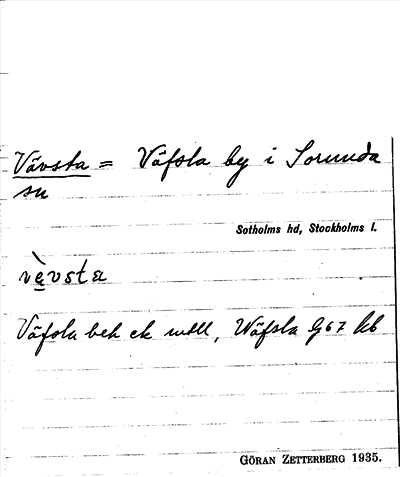 Vävsta = Väfsla by i Sorunda
sn
Sotholms hd, Stockholms l.
vèvsta
Väfsla beh ek mtll, Wäfsla G67 kb
GÖRAN ZETTERBERG 1935.